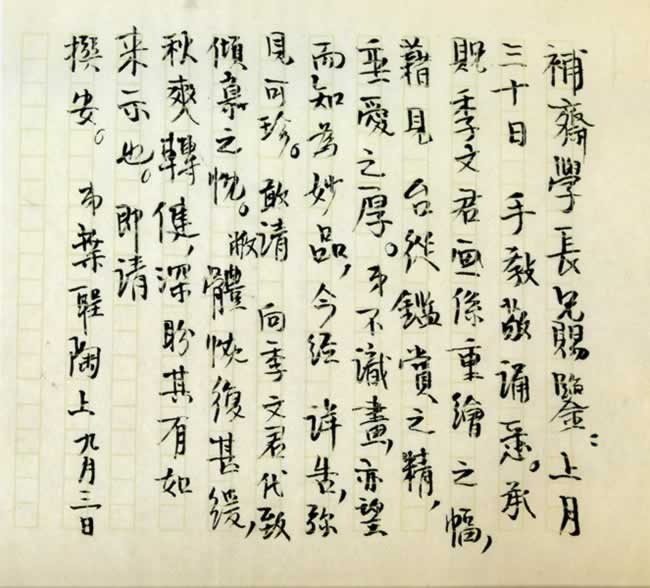 補齋學長兄賜鑒：上月
三十日 手教敬誦悉。承
貺季文君画係重繪之幅，
藉見 台從鑑賞之精，
垂愛之厚。弟不識畫，亦望
而知為妙品，今經 詳告，弥
見可珍。敢請 向季文君代致
傾慕之忱。賤體恢復甚緩，
秋爽轉健，深盼其有如
来示也。即請
撰安。 弟葉聖陶上 九月三日